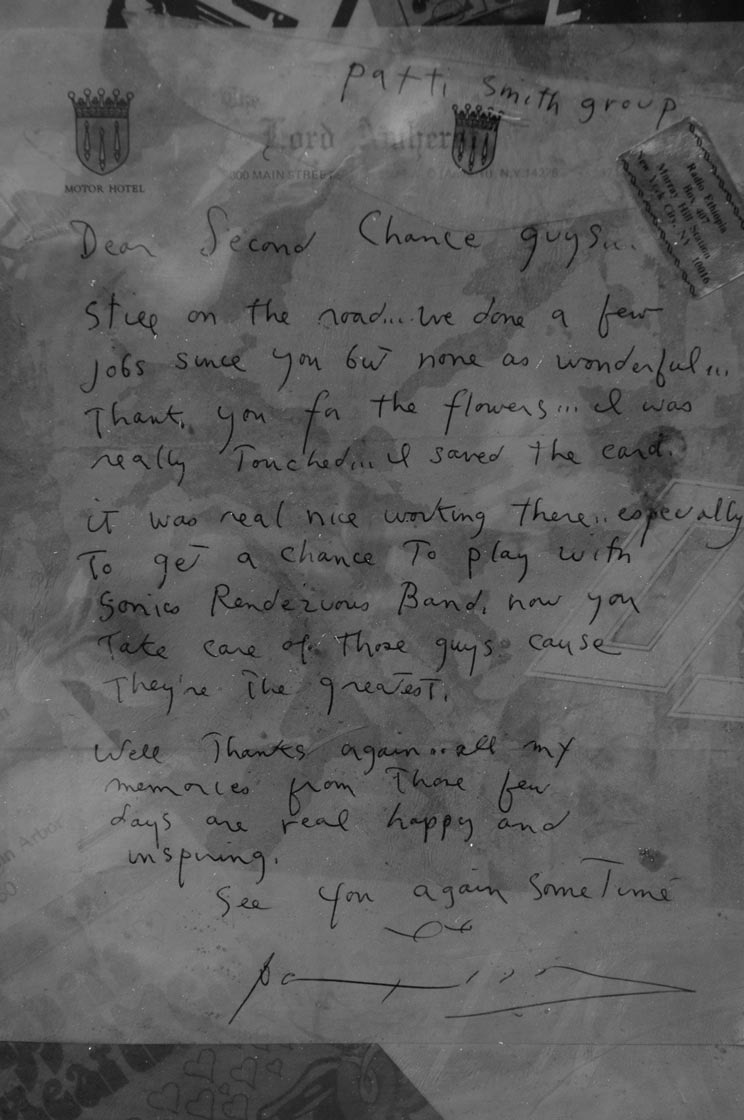 patti smith group
The
Lord Amherst
MOTOR HOTEL
000 MAIN STREET
N.Y. 14226
Radio Ethiopia
Box 407
Murray Hill Station
New York City, NY 10016
Dear Second Chance guys...
Still on the road... We done a few
jobs since you but none as wonderful...
Thank you for the flowers... I was
really Touched... I saved the card.
it was real nice working there.. especially
To get a chance To play with
Sonics Rendezvous Band. now you
Take care of those guys cause
They're The greatest.
Well Thanks again.. all my
memories from Those few
days are real happy and
inspiring.
See you again someTime
Arbor